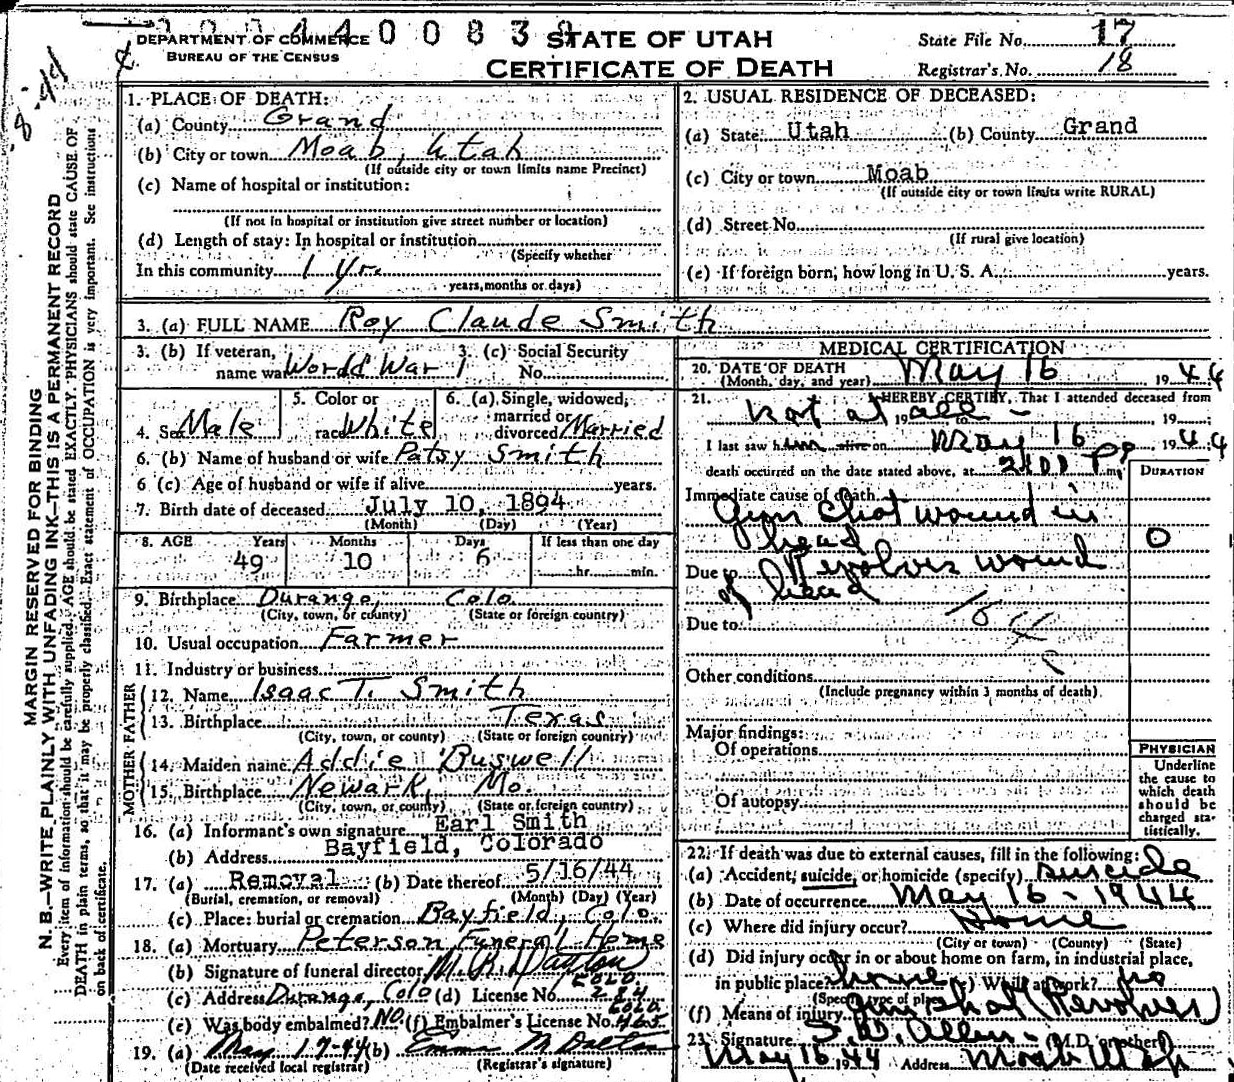 DEPARTMENT OF COMMERCE
BUREAU OF THE CENSUS
STATE OF UTAH
CERTIFICATE OF DEATH
State File No. 17
Registrar's No. 18
MARGIN RESERVED FOR BINDING
N. B.—WRITE PLAINLY WITH UNFADING INK—THIS IS A PERMANENT RECORD
Every item of information should be carefully supplied. AGE should be stated EXACTLY. PHYSICIANS should state CAUSE OF
DEATH in plain terms, so that it may be properly classified. Exact statement of OCCUPATION is very important. See instructions
on back of certificate.
1. PLACE OF DEATH:
(a) County Grand
(b) City or town Moab, Utah
(If outside city or town limits name Precinct)
(c) Name of hospital or institution:
(If not in hospital or institution give street number or location)
(d) Length of stay: In hospital or institution
(Specify whether
In this community 1 yr.
years, months or days)
2. USUAL RESIDENCE OF DECEASED:
(a) State Utah (b) County Grand
(c) City or town Moab
(If outside city or town limits write RURAL)
(d) Street No.
(If rural give location)
(e) If foreign born, how long in U. S. A. years.
3. (a) FULL NAME Roy Claude Smith
3. (b) If veteran, name war World War 1
3. (c) Social Security No.
4. Sex Male
5. Color or race White
6. (a) Single, widowed, married or divorced Married
6. (b) Name of husband or wife Patsy Smith
6 (c) Age of husband or wife if alive years.
7. Birth date of deceased July 10, 1894
(Month) (Day) (Year)
8. AGE Years Months Days If less than one day
49 10 6 hr. min.
9. Birthplace Durango, Colo.
(City, town, or county) (State or foreign country)
10. Usual occupation Farmer
11. Industry or business
FATHER
12. Name Isaac T. Smith
13. Birthplace Texas
(City, town, or county) (State or foreign country)
MOTHER
14. Maiden name Addie Buswell
15. Birthplace Newark, Mo.
(City, town, or county) (State or foreign country)
16. (a) Informant's own signature Earl Smith
(b) Address Bayfield, Colorado
17. (a) Removal (b) Date thereof 5/16/44
(Burial, cremation, or removal) (Month) (Day) (Year)
(c) Place: burial or cremation Bayfield, Colo.
18. (a) Mortuary Peterson Funeral Home
(b) Signature of funeral director M. R. Dayton
(c) Address Durango, Colo (d) License No. Colo 214
(e) Was body embalmed? No (f) Embalmer's License No. Colo 465
19. (a) May 17-44 (b) Emma M Dalton
(Date received local registrar) (Registrar's signature)
MEDICAL CERTIFICATION
20. DATE OF DEATH
(Month, day, and year) May 16 1944
21. I HEREBY CERTIFY, That I attended deceased from
Not at all - 19 to 19
I last saw him alive on May 16 1944
death occurred on the date stated above, at 2:00 P. m.
DURATION
Immediate cause of death
Gun shot wound in
head 0
Due to Revolver wound
of head
Due to
Other conditions
(Include pregnancy within 3 months of death)
Major findings:
Of operations
Of autopsy
PHYSICIAN
Underline
the cause to
which death
should be
charged sta-
tistically.
22. If death was due to external causes, fill in the following:
(a) Accident, suicide, or homicide (specify) Suicide
(b) Date of occurrence May 16 - 1944
(c) Where did injury occur? Home
(City or town) (County) (State)
(d) Did injury occur in or about home on farm, in industrial place,
in public place? home (e) While at work? no
(Specify type of place)
(f) Means of injury gunshot (Revolver)
23. Signature S. W. Allen - (M.D. or other)
May 16 1944 Address Moab Utah